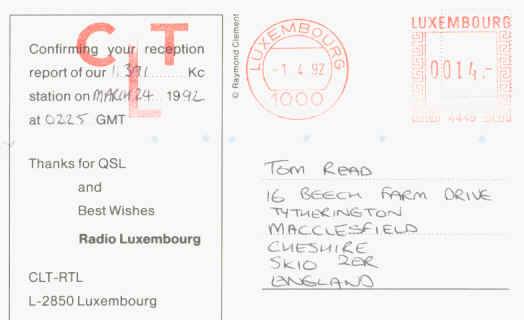 CLT
Confirming your reception
report of our Kc
station on MARCH 24 1992
at 0225 GMT
Thanks for QSL
and
Best Wishes
Radio Luxembourg
CLT-RTL
L-2850 Luxembourg
© Raymond Clement
LUXEMBOURG
-1.4.92
1000
LUXEMBOURG
0014.-
4449
TOM READ
16 BEECH FARM DRIVE
TYTHERINGTON
MACCLESFIELD
CHESHIRE
SK10 2ER
ENGLAND